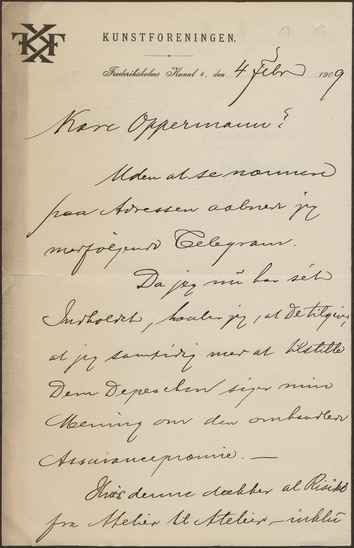 KUNSTFORENINGEN.
Frederiksholms Kanal 4, den 4 Febr 1909
Kære Oppermann!
Uden at se nærmere
paa Adressen aabnede jeg
medfølgende Telegram.
Da jeg nu har set
Indholdet, haaber jeg, at De tilgiver,
at jeg samtidig med at tilstille
Dem Depeschen siger min
Mening om den omhandlede
Assurancepræmie. —
Hvis denne dækker al Risiko
fra Atelier til Atelier, — inklu